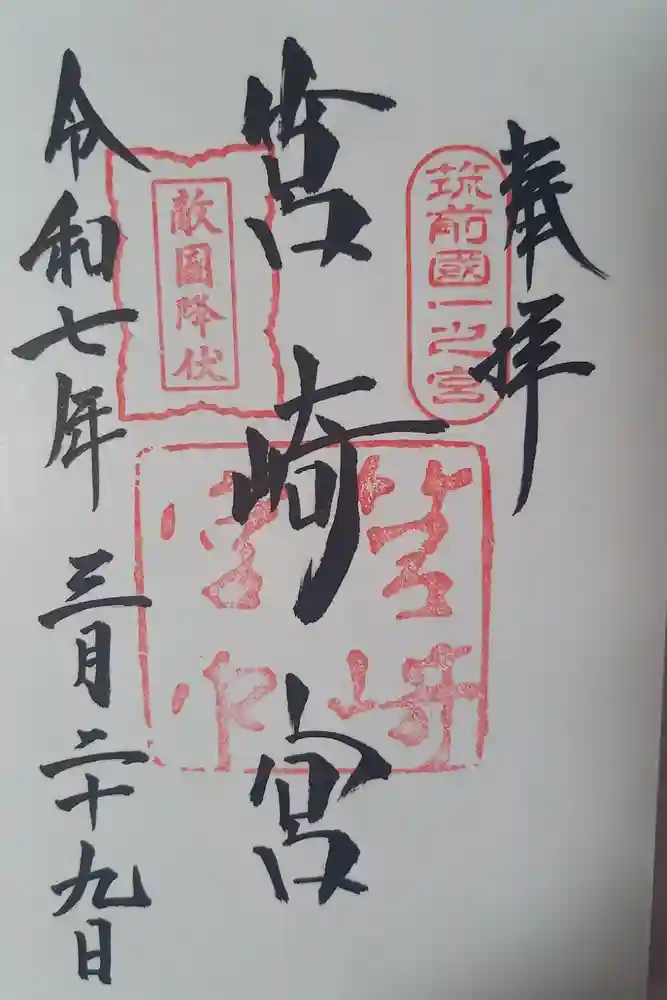 奉拝
筑前國一之宮
筥崎宮
敵國降伏
筥崎
宮印
令和七年三月二十九日